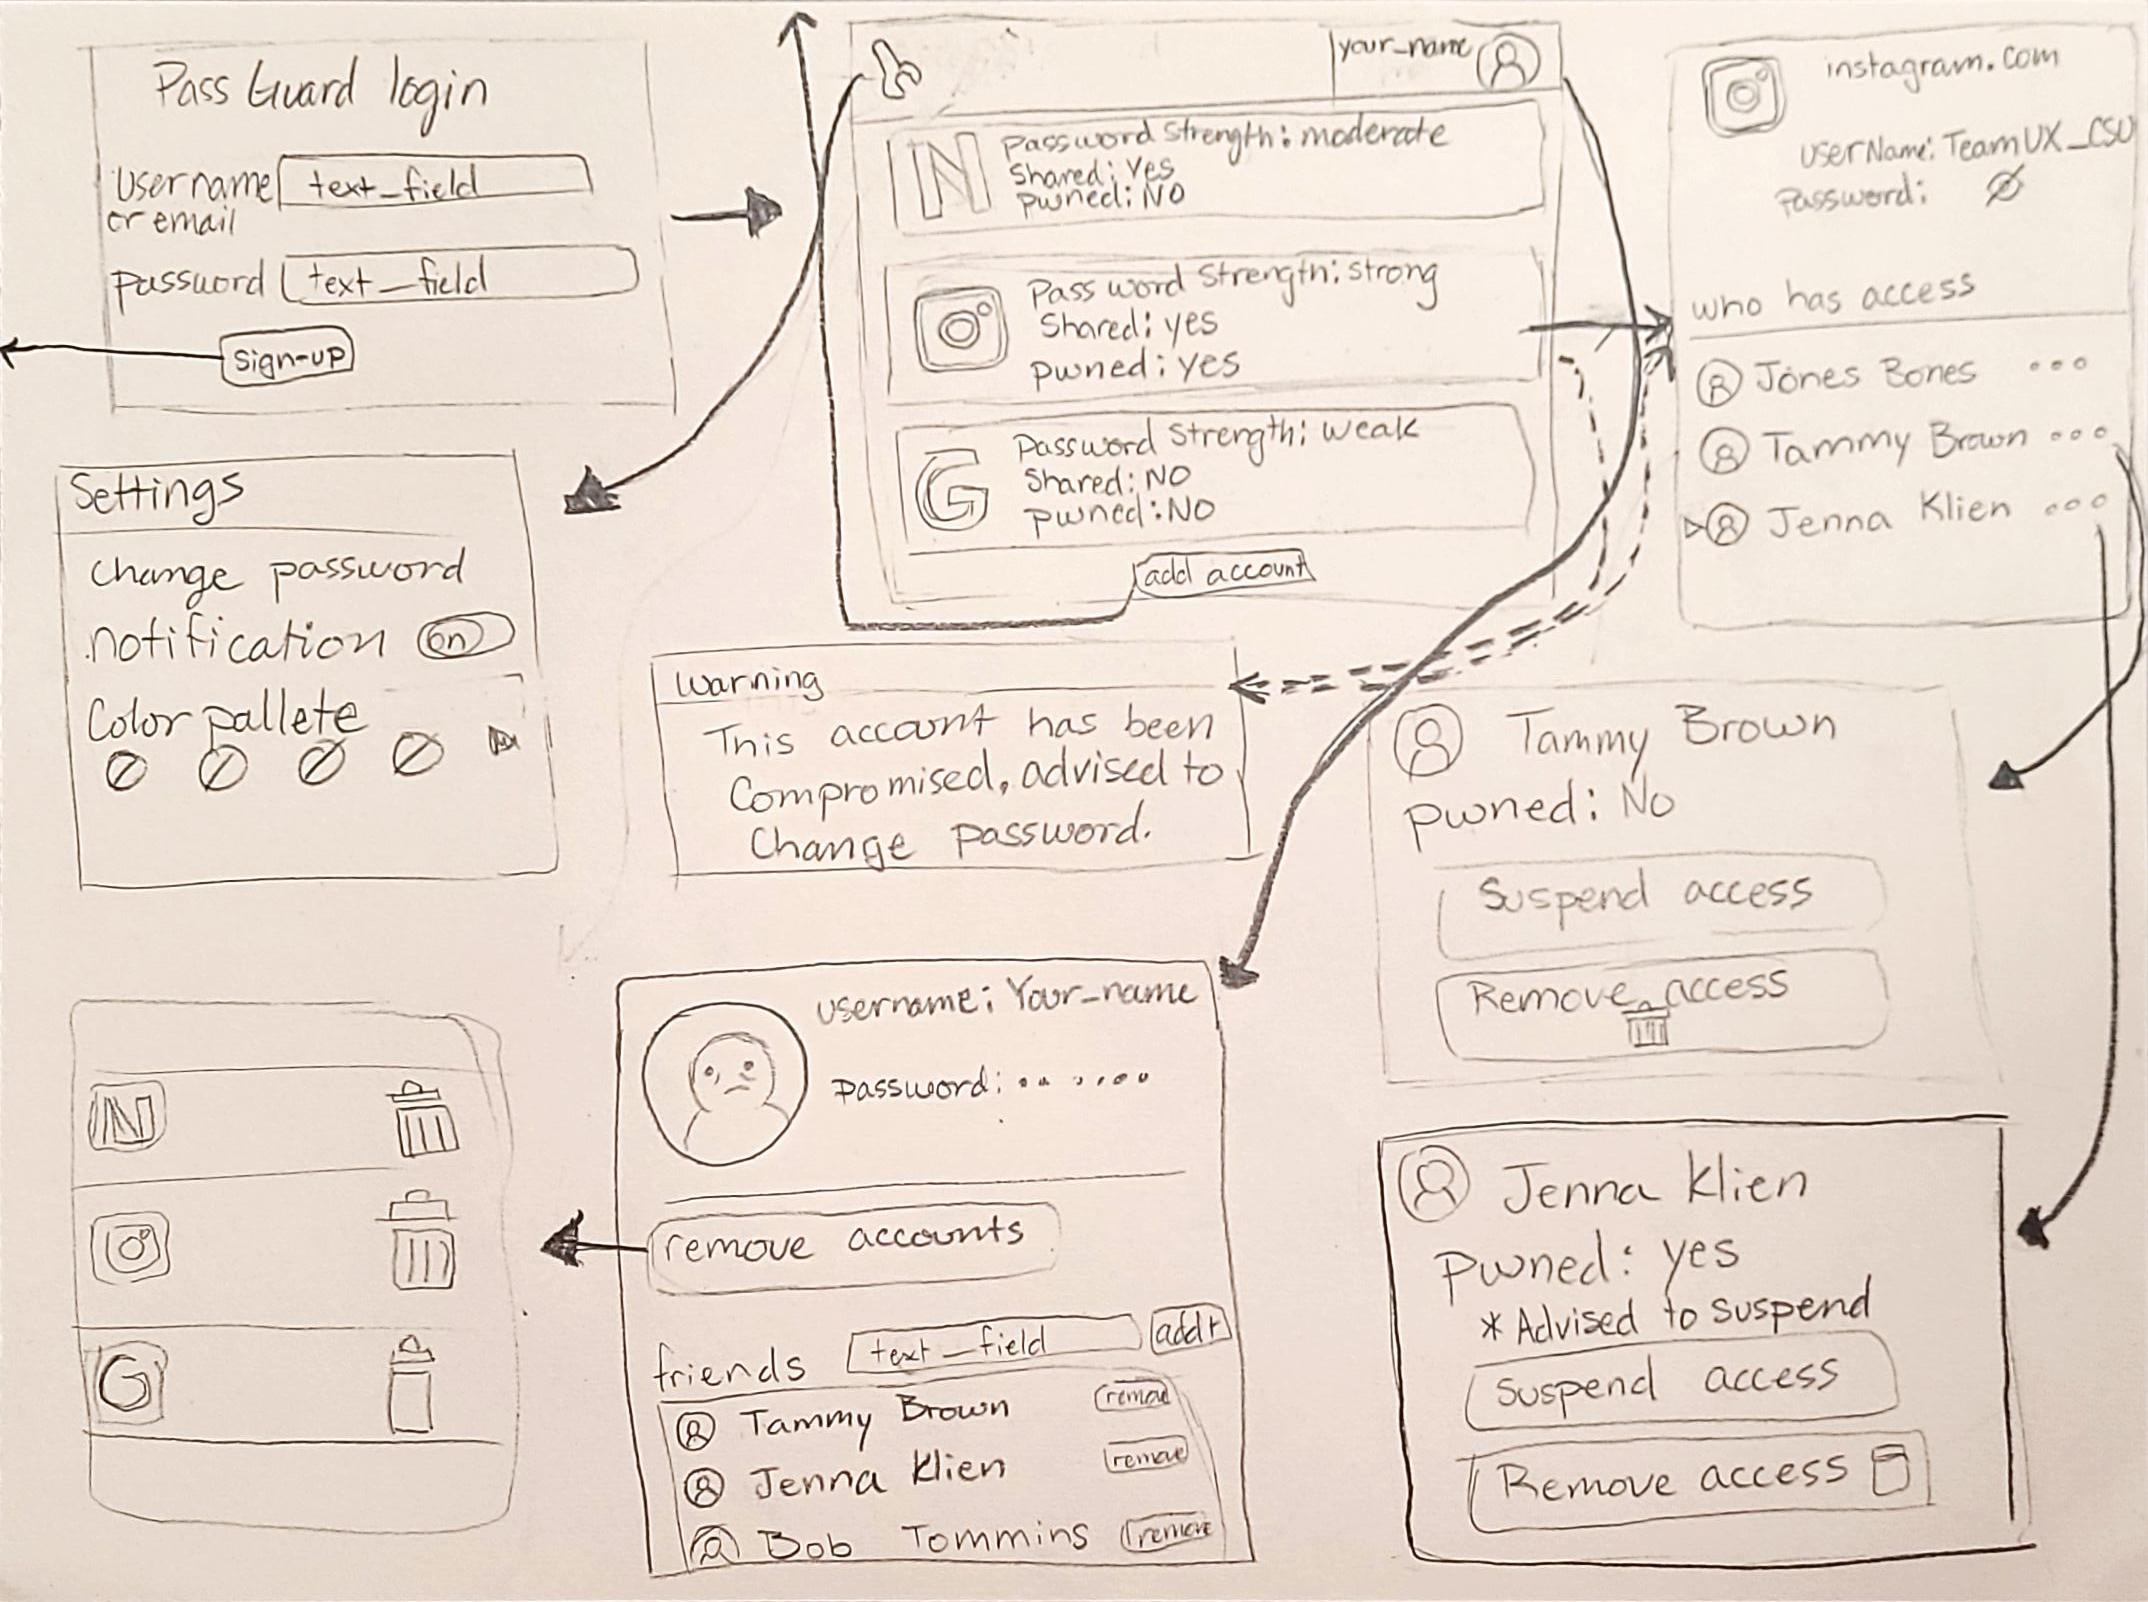 Pass Guard login
Username
or email
text_field
password
text_field
sign-up
your_name
N
Password Strength: moderate
Shared: Yes
pwned: NO
Password Strength: strong
Shared: yes
pwned: yes
G
Password Strength: weak
Shared: NO
pwned: NO
add account
instagram.com
UserName: TeamUX_CSU
Password:
who has access
Jones Bones
Tammy Brown
Jenna Klien
Settings
Change password
notification on
Color pallete
Warning
This account has been
Compromised, advised to
Change password.
Tammy Brown
pwned: No
Suspend access
Remove access
N
G
username: Your_name
password:
remove accounts
friends text_field add+
Tammy Brown remove
Jenna Klien remove
Bob Tommins remove
Jenna Klien
pwned: yes
* Advised to suspend
Suspend access
Remove access